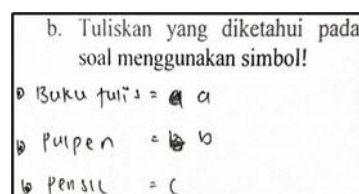 b. Tuliskan yang diketahui pada
soal menggunakan simbol!
Buku tulis = a
Pulpen = b
Pensil = c